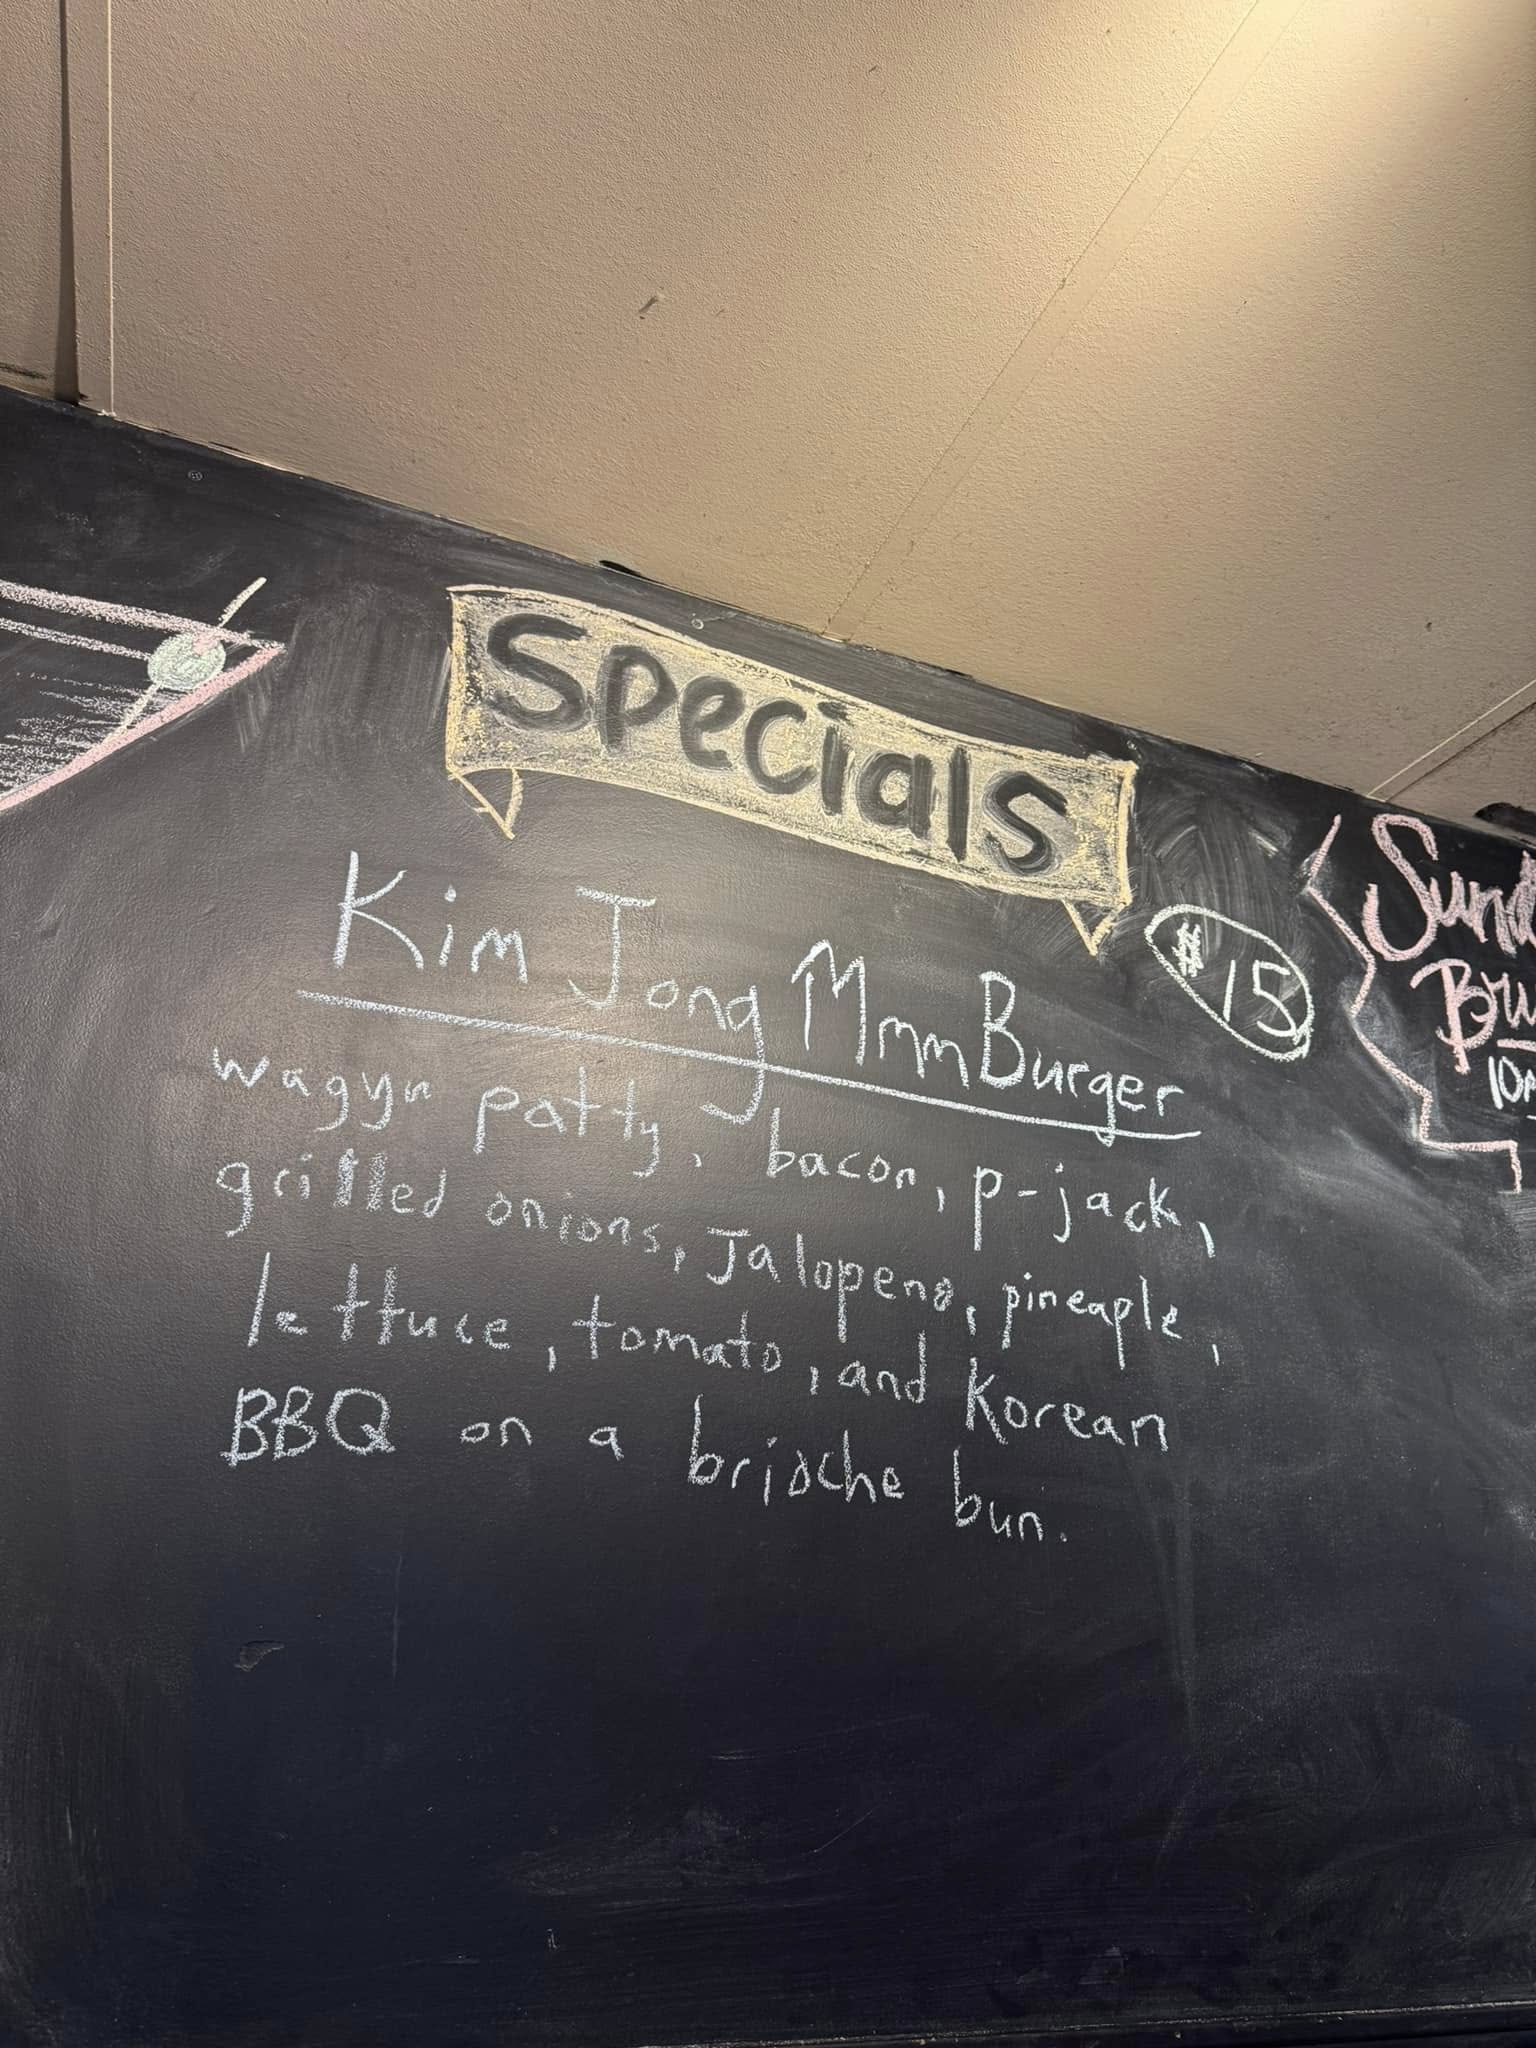 Specials
Kim Jong MmmBurger
$15
wagyu patty, bacon, p-jack,
grilled onions, Jalopeno, pineapple,
lettuce, tomato, and Korean
BBQ on a brioche bun.